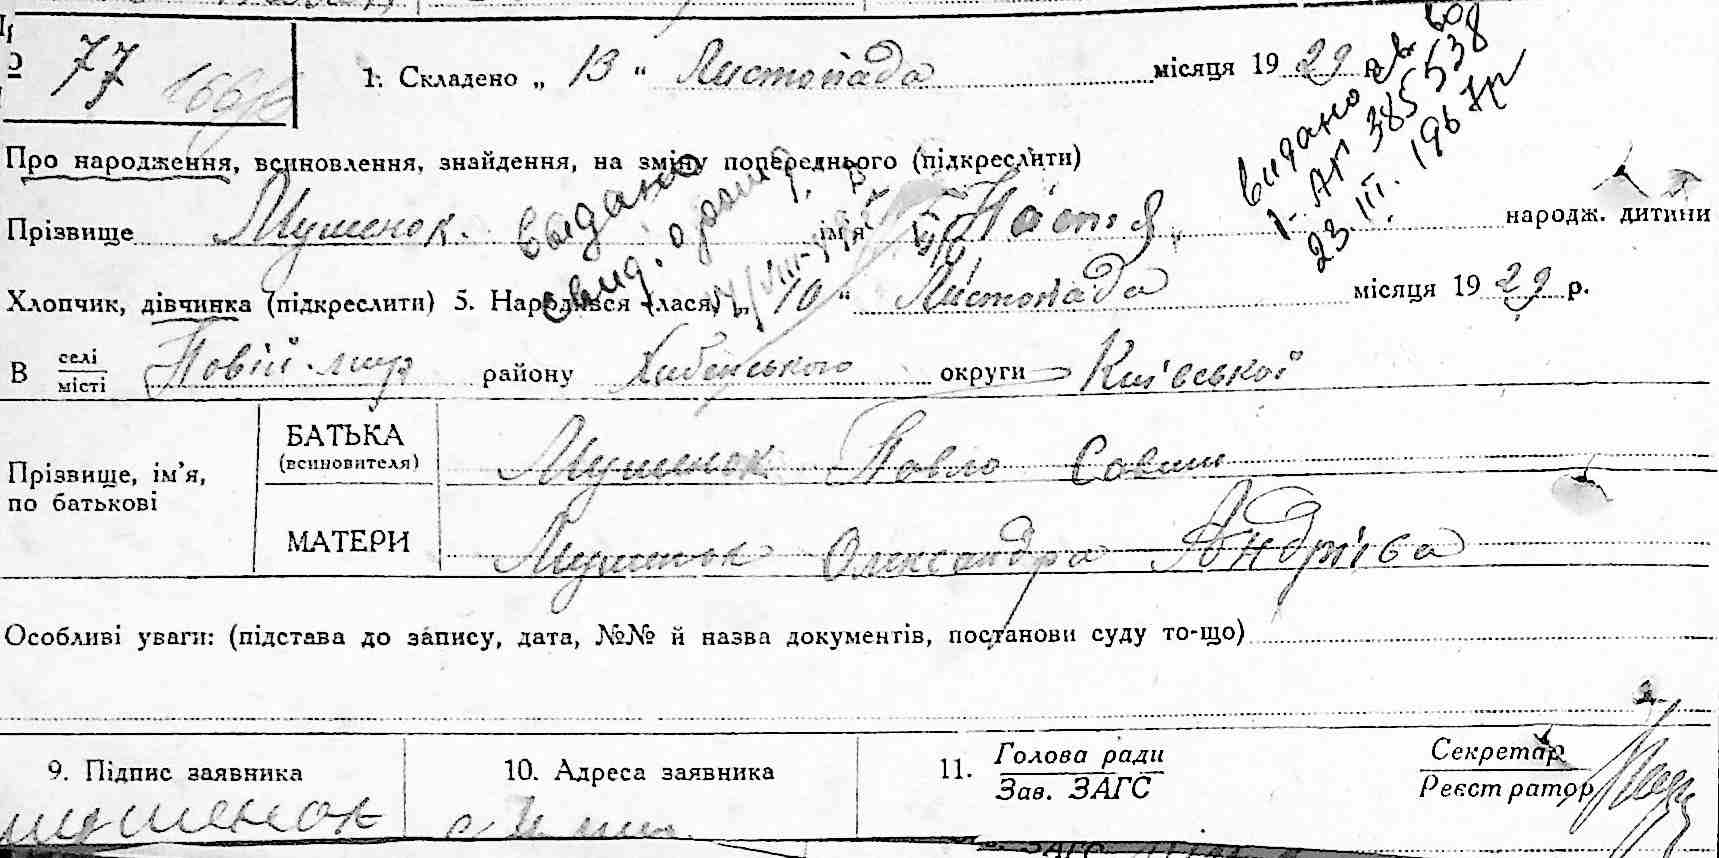 77
1. Складено „ 13 " Листопада місяця 1929 р.
видано св. во
І-АП 385538
23.III.1967р
Про народження, всиновлення, знайдення, на зміну попереднього (підкреслити)
Прізвище Мушенок. ім'я Настя народж. дитини
выдано
свид. о рожд.
Хлопчик, дівчинка (підкреслити) 5. Народився (лася) „ 10 " Листопада місяця 1929 р.
В селі
місті Новій-мир району Хабенського округи Київської
Прізвище, ім'я,
по батькові
БАТЬКА
(всиновителя)
Мушенок Павло Савин
МАТЕРИ
Мушенок Олександра Андріва
Особливі уваги: (підстава до запису, дата, №№ й назва документів, постанови суду то-що)
9. Підпис заявника
Мушенок
10. Адреса заявника
11. Голова ради
Зав. ЗАГС
Секретар
Реєстратор